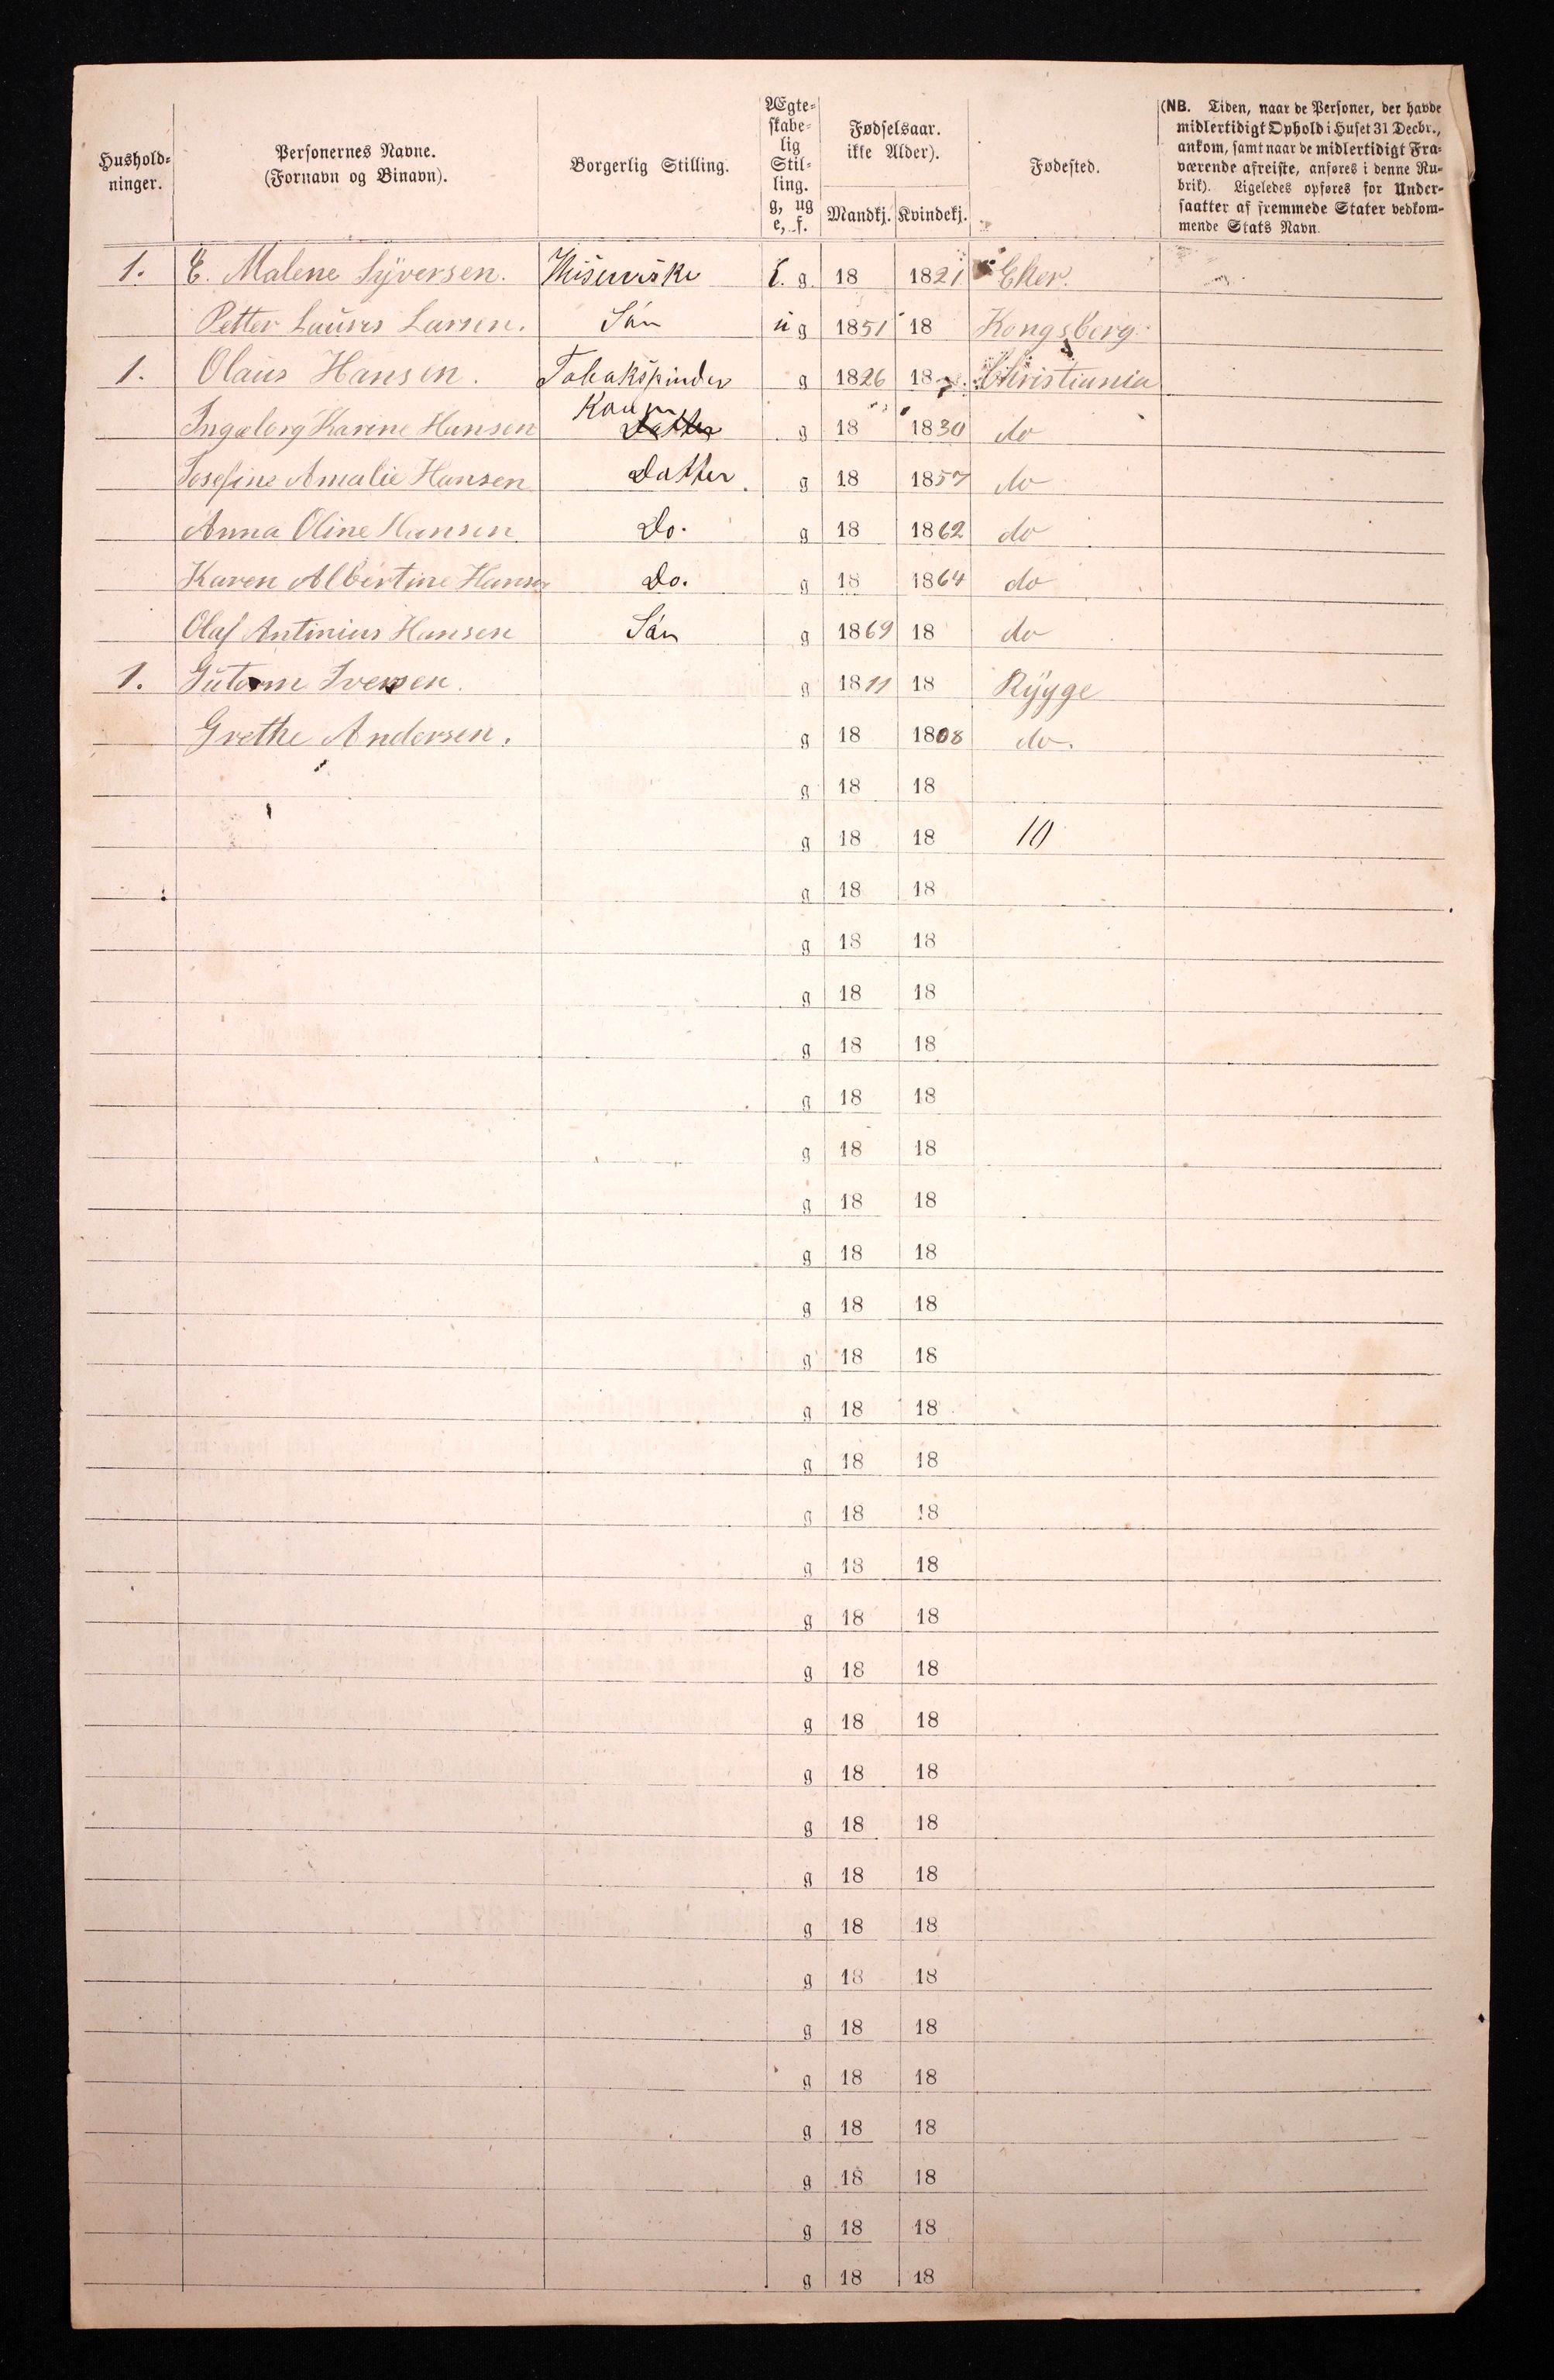 Hushold-
ninger.
Personernes Navne.
(Fornavn og Binavn).
Borgerlig Stilling.
Ægte-
skabe-
lig
Stil-
ling.
g, ug
e, f.
Fødselsaar.
ikke Alder).
Mandkj. Kvindekj.
Fødested.
(NB. Tiden, naar de Personer, der havde
midlertidigt Ophold i Huset 31 Decbr.,
ankom, samt naar de midlertidigt Fra-
værende afreiste, anføres i denne Ru-
brik). Ligeledes opføres for Under-
saatter af fremmede Stater vedkom-
mende Stats Navn.
1. E. Malene Syversen. E. g 18 1821 Eker.
Petter Laurits Larsen. Sön u g 1851 18 Kongsberg
1. Olaus Hansen. Tobakspinder g 1826 18 Christiania
Ingeborg Karine Hansen Kone Datter g 18 1830 do
Josefine Amalie Hansen Datter g 18 1857 do
Anna Oline Hansen Do. g 18 1862 do
Karen Albertine Hansen Do. g 18 1864 do
Olaf Antinius Hansen Sön g 1869 18 do
1. Gutorm Iversen. g 1811 18 Rygge
Grethe Andersen. g 18 1808 do.
g 18 18
g 18 18 10
g 18 18
g 18 18
g 18 18
g 18 18
g 18 18
g 18 18
g 18 18
g 18 18
g 18 18
g 18 18
g 18 18
g 18 18
g 18 18
g 18 18
g 18 18
g 18 18
g 18 18
g 18 18
g 18 18
g 18 18
g 18 18
g 18 18
g 18 18
g 18 18
g 18 18
g 18 18
g 18 18
g 18 18